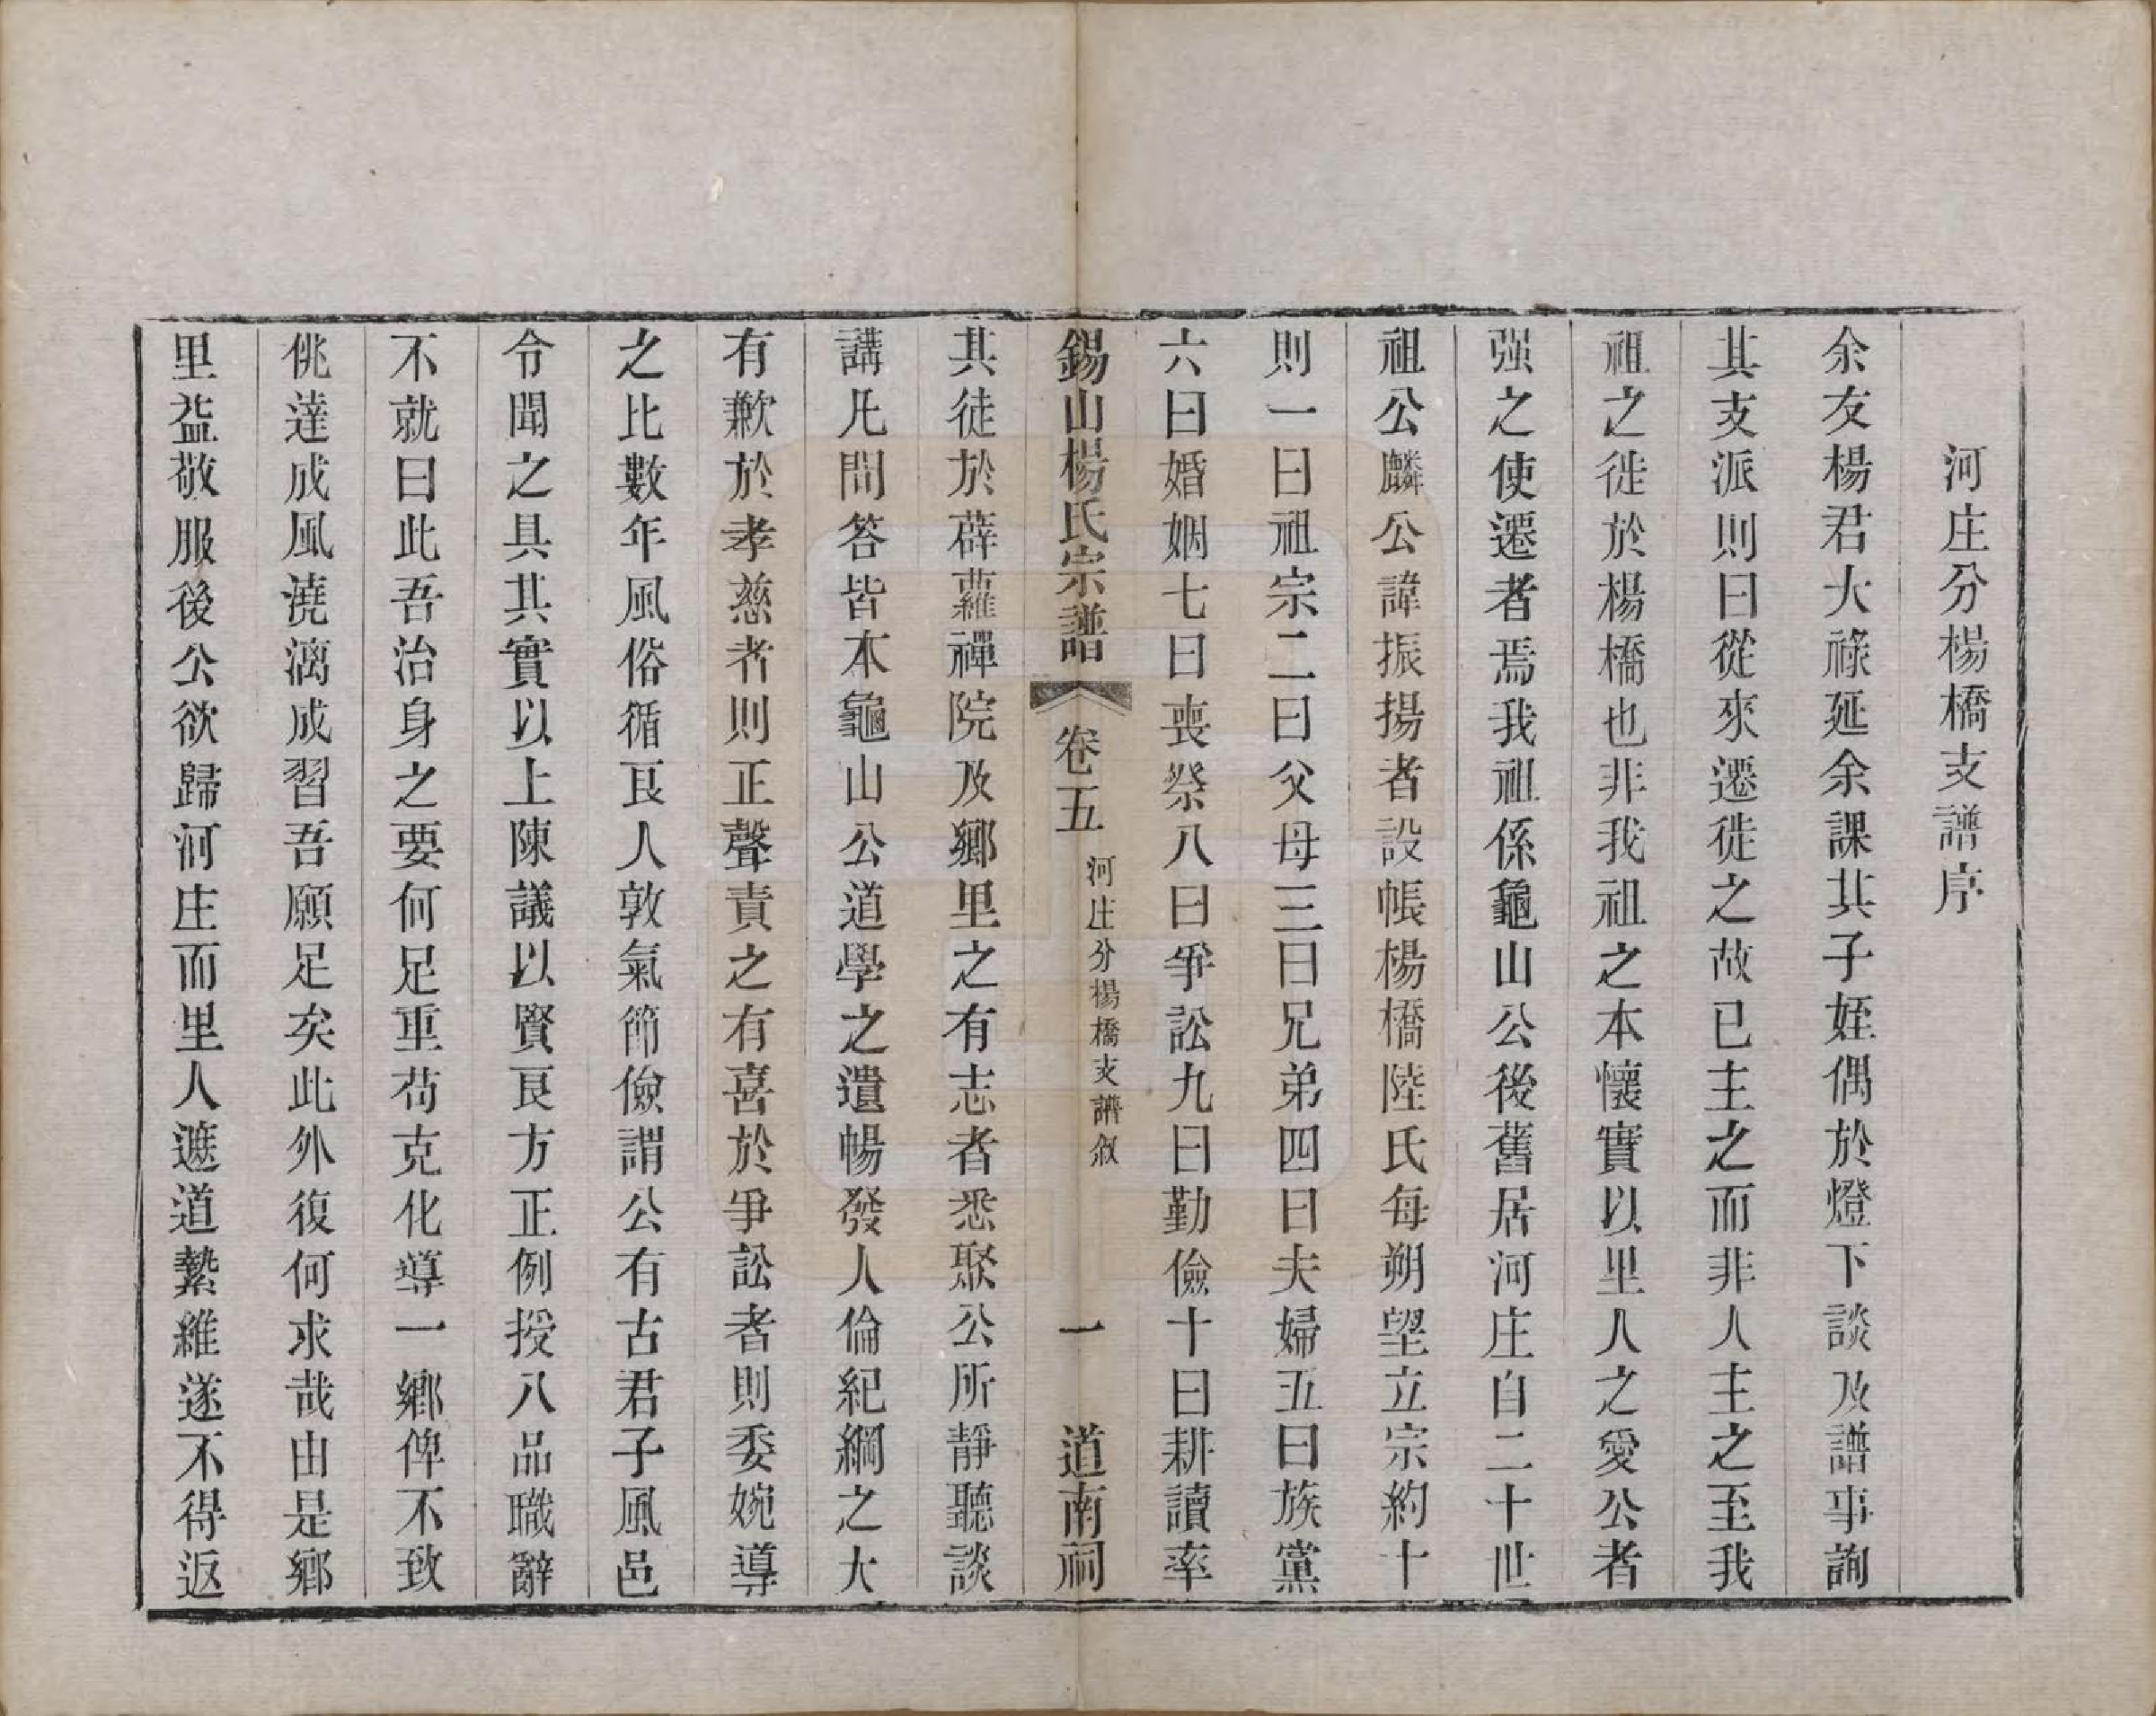 河庄分楊橋支譜序
余友楊君大祿延余課其子姪偶於燈下談及譜事詢
其支派則曰從來遷徙之故已主之而非人主之至我
祖之徙於楊橋也非我祖之本懷實以里人之愛公者
强之使遷者焉我祖係龜山公後舊居河庄自二十世
祖公麟公諱振揚者設帳楊橋陸氏每朔望立宗約十
則一曰祖宗二曰父母三曰兄弟四曰夫婦五曰族黨
六曰婚姻七曰喪祭八曰爭訟九曰勤儉十曰耕讀率
錫山楊氏宗譜 卷五 河庄分楊橋支譜叙 一 道南祠
其徒於薜蘿禪院及鄉里之有志者悉聚公所靜聽談
講凡問答皆本龜山公道學之遺暢發人倫紀綱之大
有歉於孝慈者則正聲責之有喜於爭訟者則委婉導
之比數年風俗循良人敦氣節儉謂公有古君子風邑
令聞之具其實以上陳議以賢良方正例授八品職辭
不就曰此吾治身之要何足重茍克化導一鄉俾不致
佻達成風澆漓成習吾願足矣此外復何求哉由是鄉
里益敬服後公欲歸河庄而里人遮道縶維遂不得返